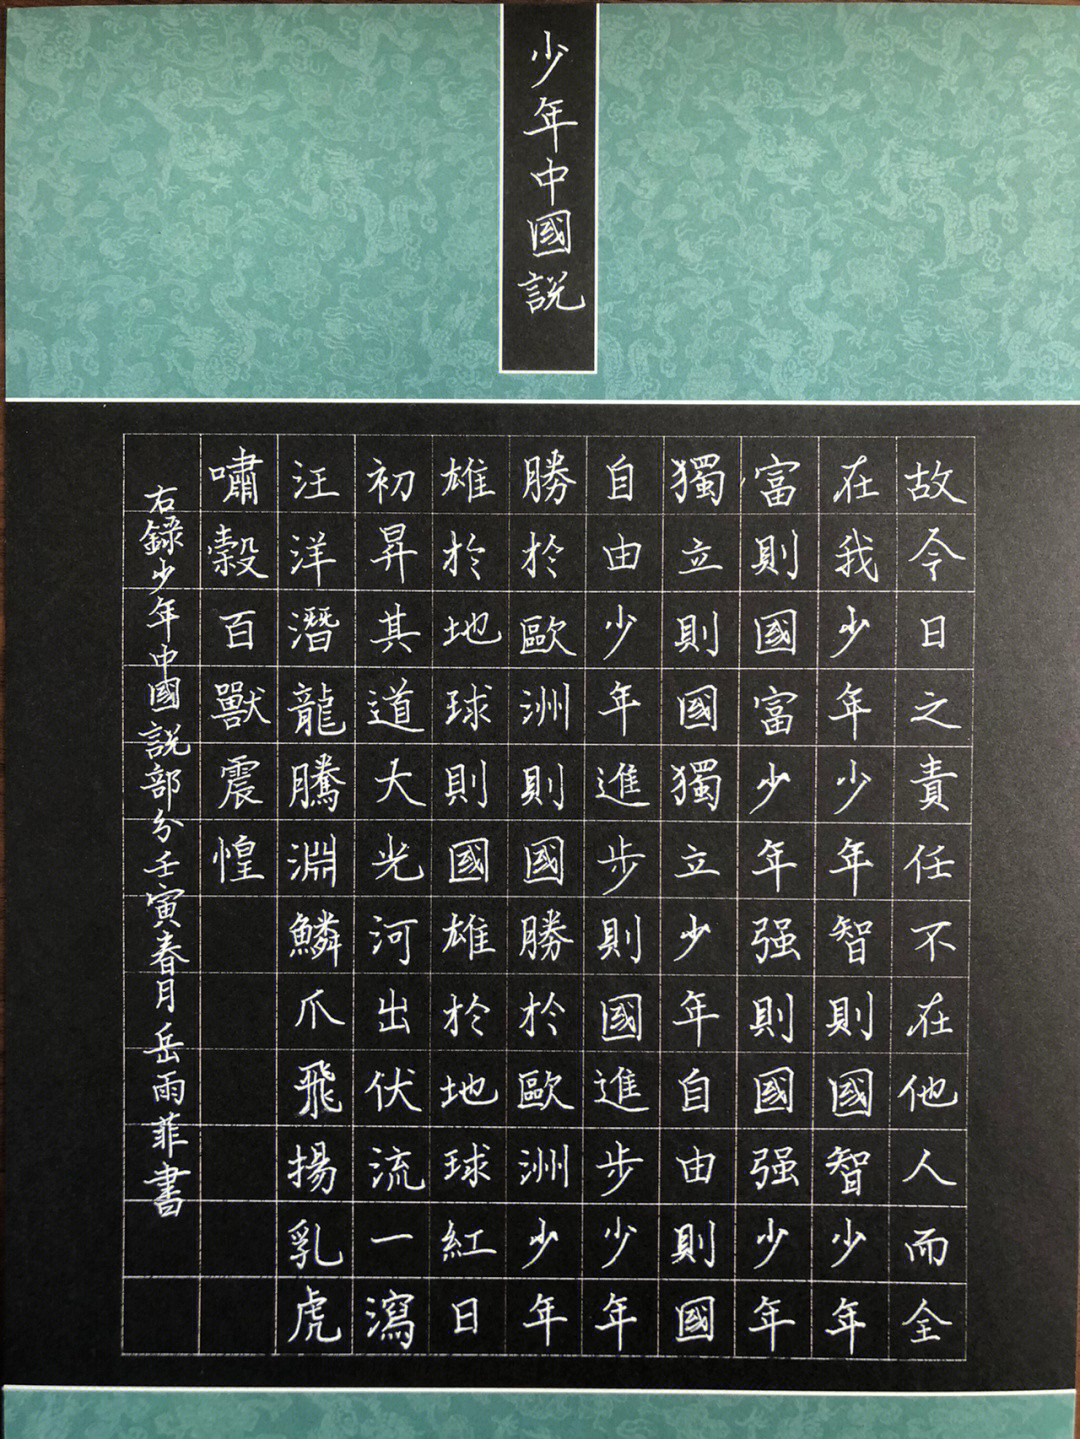 少年中國説
故今日之責任不在他人而全
在我少年少年智則國智少年
富則國富少年强則國强少年
獨立則國獨立少年自由則國
自由少年進步則國進步少年
勝於歐洲則國勝於歐洲少年
雄於地球則國雄於地球紅日
初昇其道大光河出伏流一瀉
汪洋潛龍騰淵鱗爪飛揚乳虎
嘯穀百獸震惶
右錄少年中國説部分壬寅春月岳雨菲書